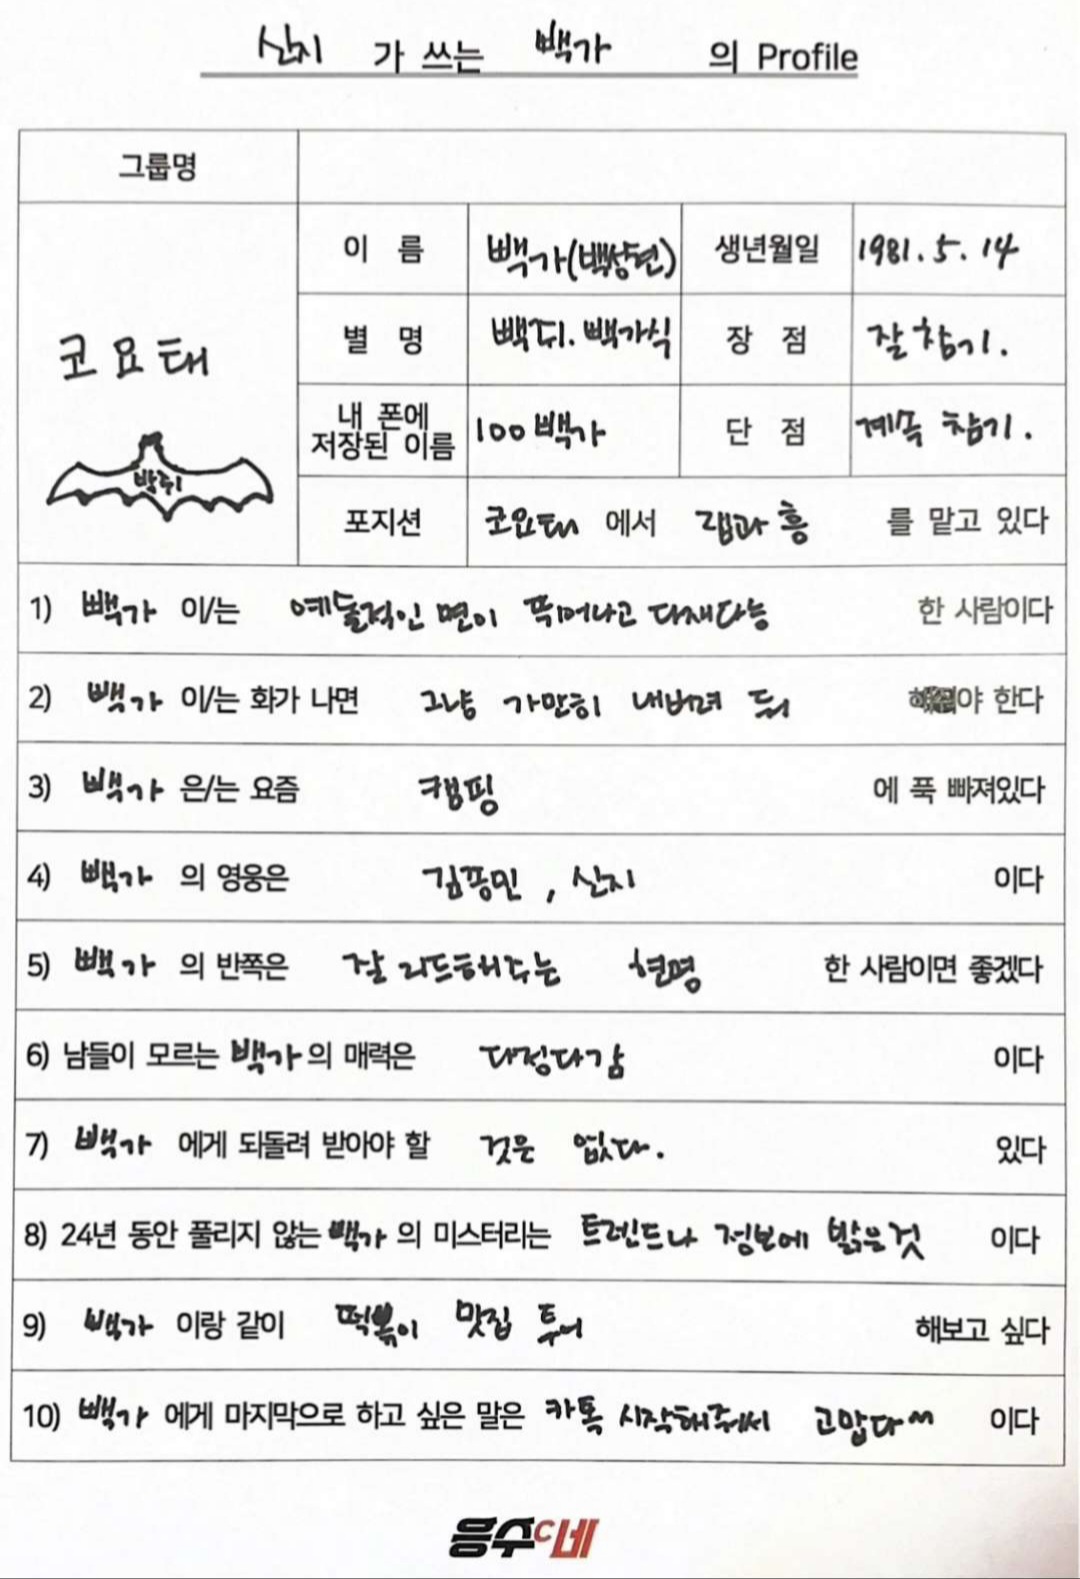 신지 가 쓰는 빽가 의 Profile
그룹명
코요태
박쥐
이 름 빽가(백성현) 생년월일 1981.5.14
별 명 빽쥐. 빽가식 장 점 잘 참기.
내 폰에 저장된 이름 100 빽가 단 점 계속 참기.
포지션 코요태 에서 랩과 흥 를 맡고 있다
1) 빽가 이/는 예술적인 면이 뛰어나고 다재다능 한 사람이다
2) 빽가 이/는 화가 나면 그냥 가만히 내버려 둬 야 한다
3) 빽가 은/는 요즘 캠핑 에 푹 빠져있다
4) 빽가 의 영웅은 김종민 , 신지 이다
5) 빽가 의 반쪽은 잘 리드해주는 현명 한 사람이면 좋겠다
6) 남들이 모르는 빽가 의 매력은 다정다감 이다
7) 빽가 에게 되돌려 받아야 할 것은 없다. 있다
8) 24년 동안 풀리지 않는 빽가 의 미스터리는 트렌드나 정보에 밝은것 이다
9) 빽가 이랑 같이 떡볶이 맛집 투어 해보고 싶다
10) 빽가 에게 마지막으로 하고 싶은 말은 카톡 시작해줘서 고맙다 이다
응수C네